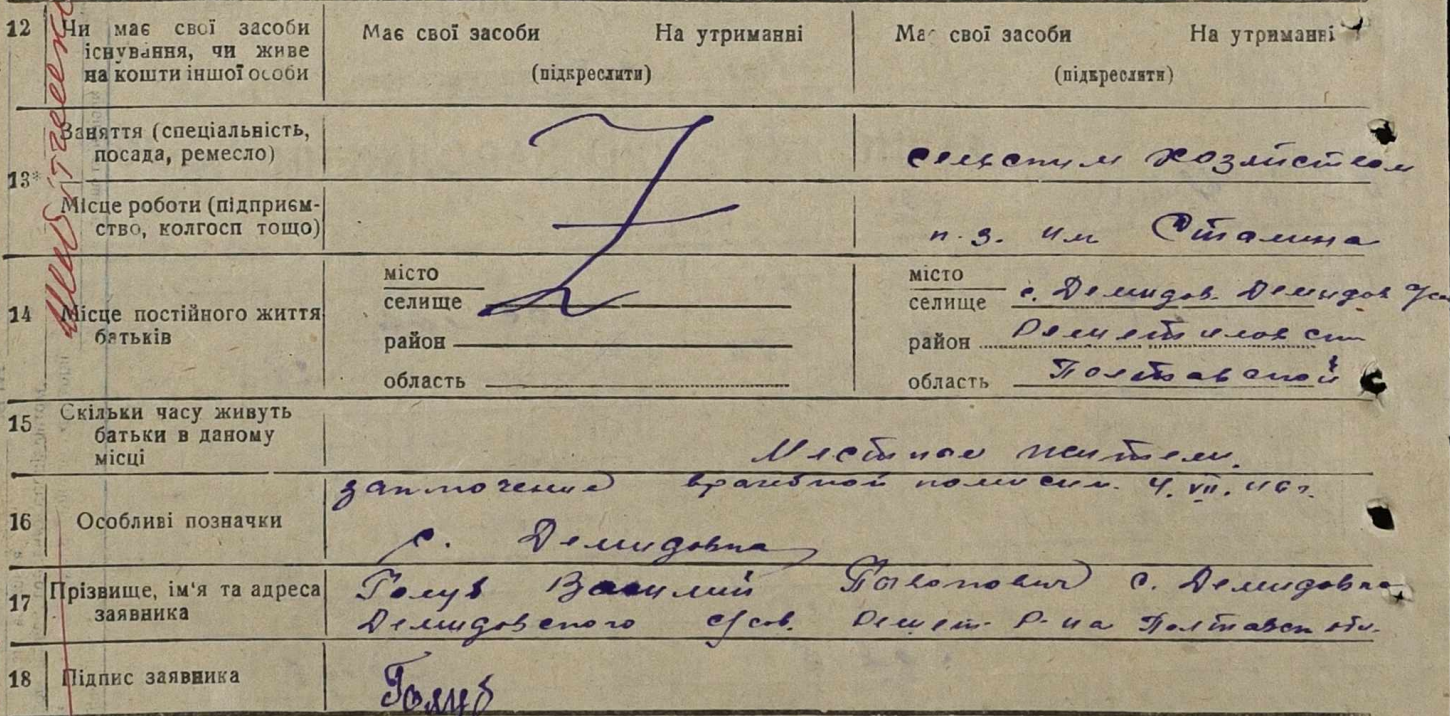 12 Чи має свої засоби існування, чи живе на кошти іншої особи
Має свої засоби На утриманні
(підкреслити)
Має свої засоби На утриманні
(підкреслити)
13* Заняття (спеціальність, посада, ремесло)
сельским хозяйством
Місце роботи (підприємство, колгосп тощо)
к-з. им Сталина
14 Місце постійного життя батьків
місто
селище
район
область
місто
селище с. Демидов. Демидов
район Решетиловск
область Полтавской
15 Скільки часу живуть батьки в даному місці
Местные жители.
16 Особливі позначки
заключение врачебной комиссии. 4.VII.46 г.
с. Демидовка
17 Прізвище, ім'я та адреса заявника
Голуб Василий с. Демидовка
Демидовского с/сов. Решет. Р-на Полтавск обл.
18 Підпис заявника
Голуб